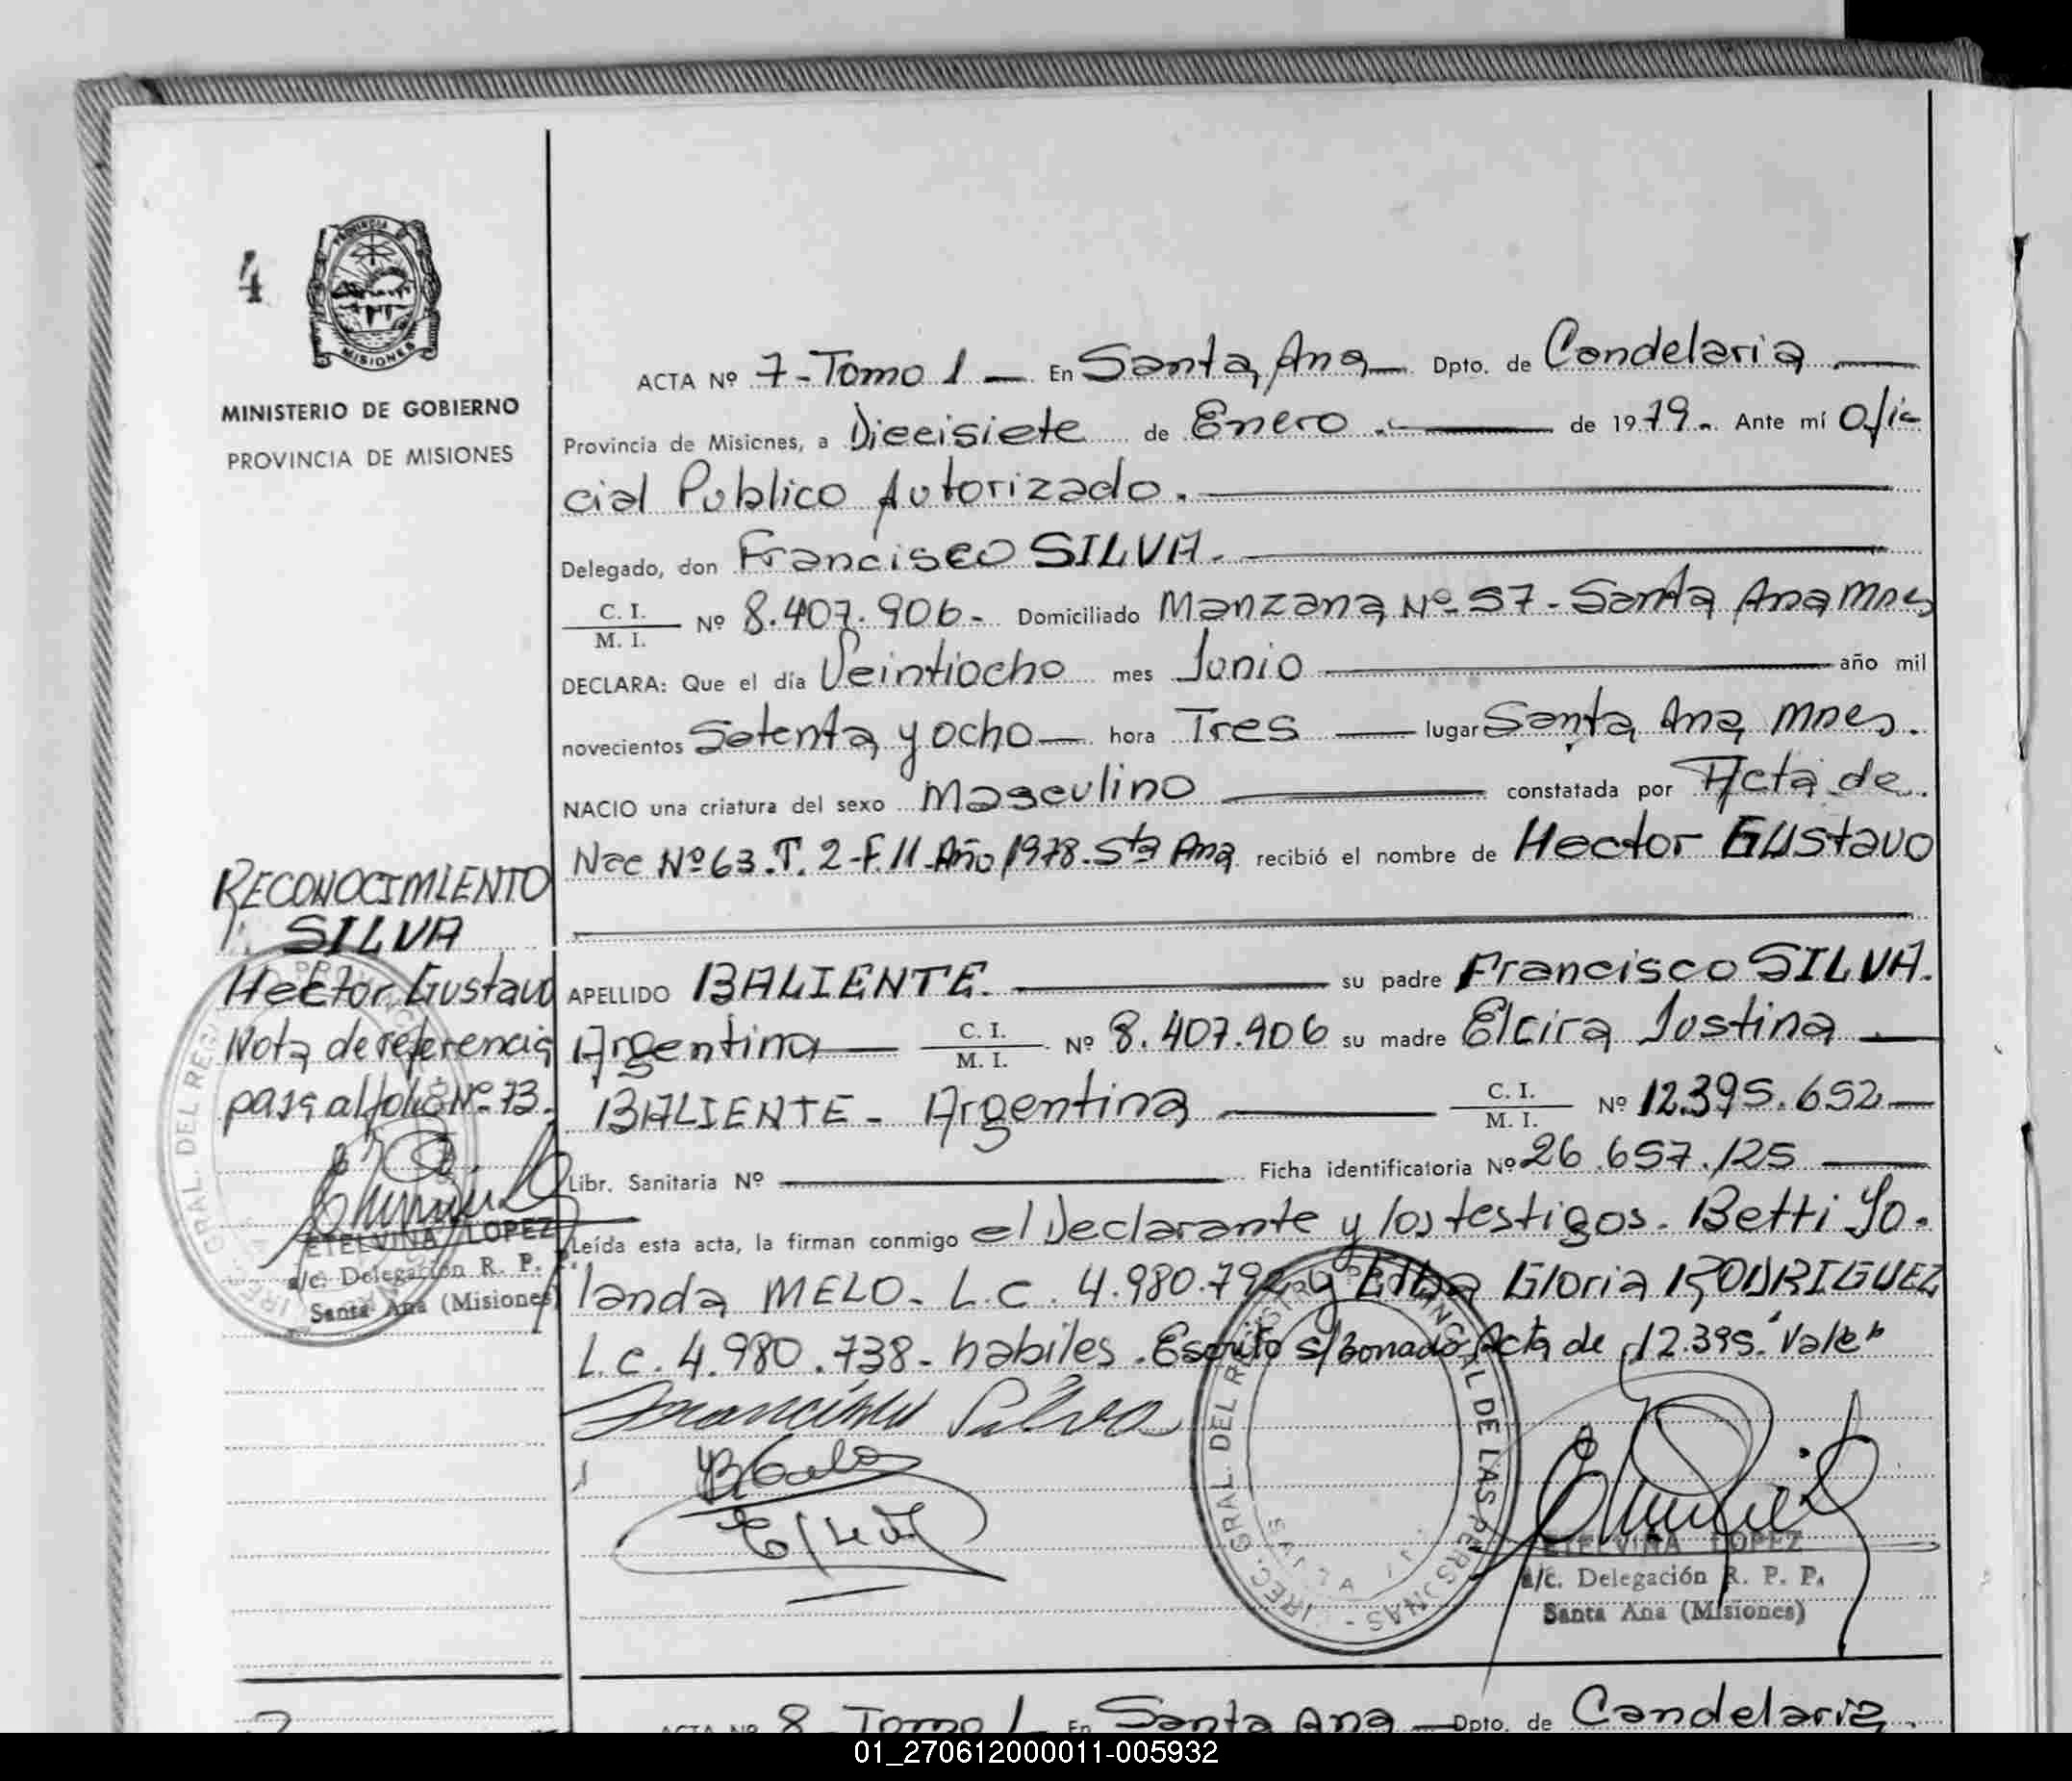 4
PROVINCIA
MISIONES
MINISTERIO DE GOBIERNO
PROVINCIA DE MISIONES
ACTA Nº 7-Tomo 1 — En Santa Ana — Dpto. de Candelaria —
Provincia de Misiones, a Diecisiete de Enero — de 1979.- Ante mí Ofi-
cial Publico Autorizado. —
Delegado, don Francisco SILVA. —
C. I. / M. I. Nº 8.407.906- Domiciliado Manzana Nº 57- Santa Ana Mnes
DECLARA: Que el día Veintiocho mes Junio — año mil
novecientos Setenta y ocho — hora Tres — lugar Santa Ana Mnes.
NACIO una criatura del sexo Masculino — constatada por Acta de
Nac Nº 63.T. 2-F.11-Año 1978-Sta Ana recibió el nombre de Hector Gustavo
APELLIDO BALIENTE. — su padre Francisco SILVA.
Argentino — C. I. / M. I. Nº 8.407.906 su madre Elcira Justina —
BALIENTE - Argentina — C. I. / M. I. Nº 12.395.652 —
Libr. Sanitaria Nº — Ficha identificatoria Nº 26.657.125 —
Leída esta acta, la firman conmigo el Declarante y los testigos. Betti Yo-
landa MELO- L.C. 4.980.792 y Elba Gloria RODRIGUEZ
L.C. 4.980.738- habiles. Escrito s/borrado Acta de, 12.395. "Vale"
Francisco Silva
RECONOCIMIENTO
SILVA
Hector Gustavo
Nota de referencia
pasa al folio Nº 73.
ETELVINA LOPEZ
a/c. Delegación R. P. P.
Santa Ana (Misiones)
DIREC. GRAL. DEL REGISTRO PROVINCIAL DE LAS PERSONAS
ETELVINA LOPEZ
a/c. Delegación R. P. P.
Santa Ana (Misiones)
ACTA Nº 8 Tomo 1 En Santa Ana — Dpto. de Candelaria.
01_270612000011-005932